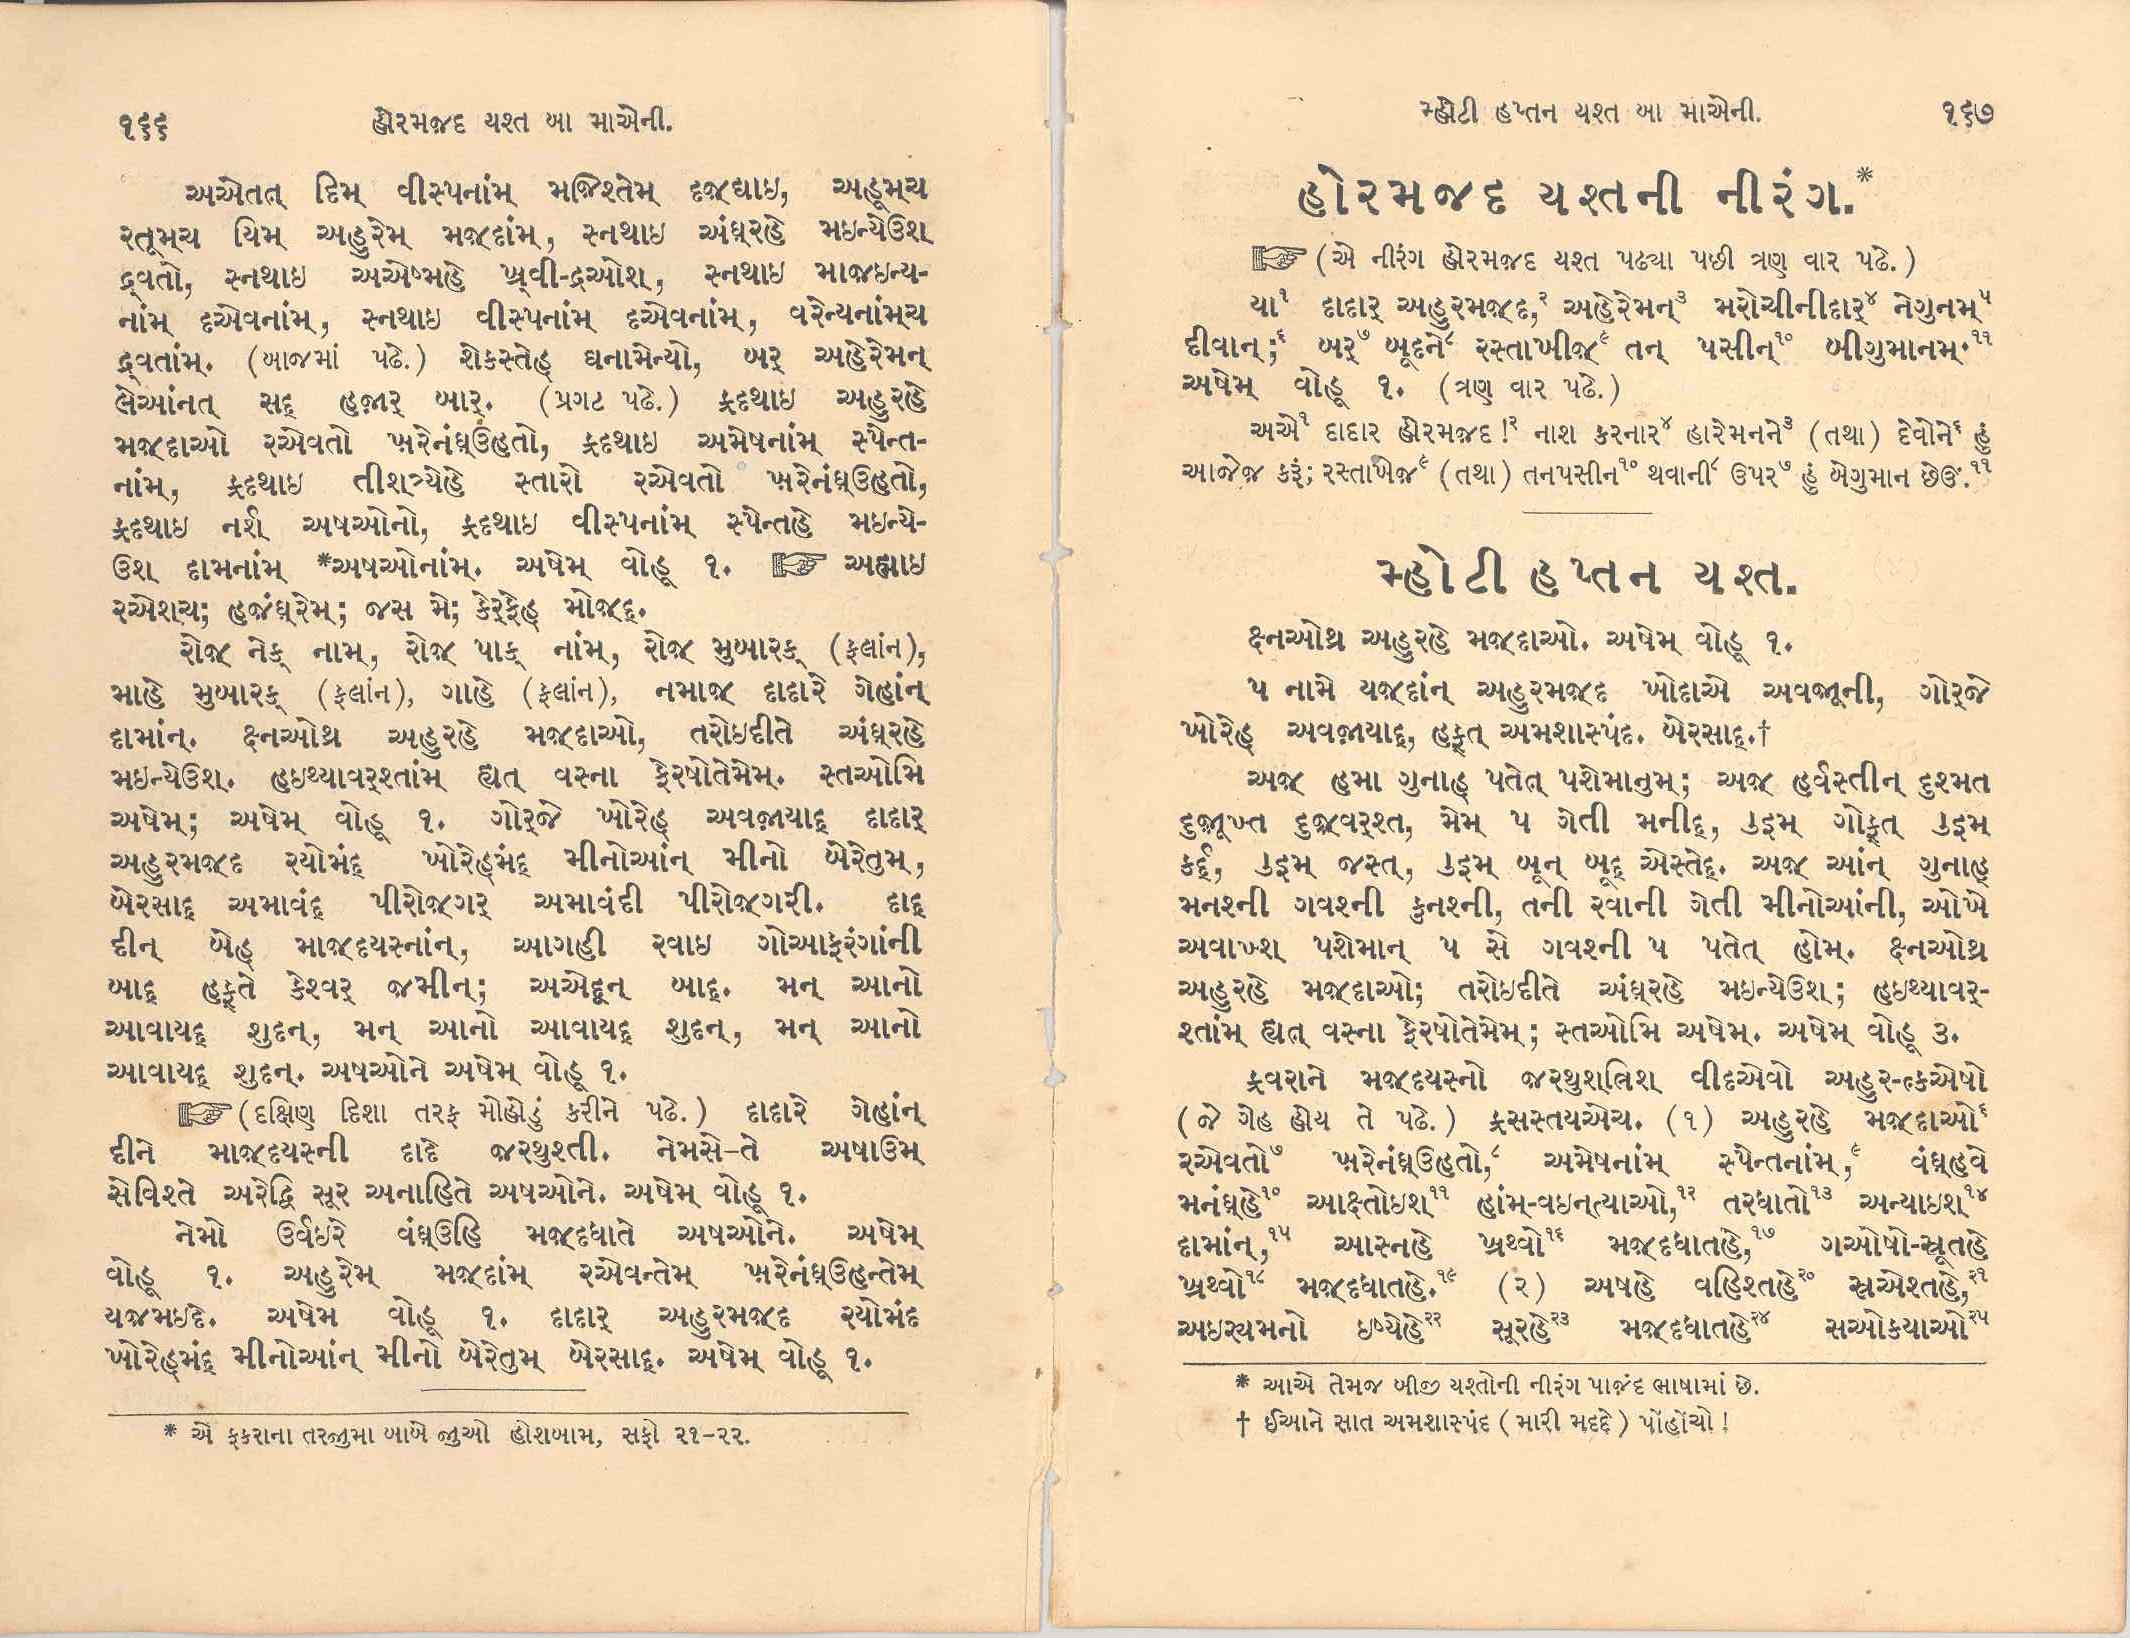 ૧૬૬
હોરમજ઼દ યશ્ત બા માએની.
અએતત્ દિમ્ વીસ્પનાંમ્ મજ઼િશ્તેમ્ દજ઼્દ્યાઇ, અહૂમ્ચ
રતૂમ્ચ યિમ્ અહુરેમ્ મજ઼્દાંમ્, સ્નથાઇ અંઘ્રહે મઇન્યેઉશ્
દ્ર્વતો, સ્નથાઇ અએષ્મહે ખ્ર્વી-દ્રઓશ્, સ્નથાઇ માજ઼ઇન્ય-
નાંમ્ દએવનાંમ્, સ્નથાઇ વીસ્પનાંમ્ દએવનાંમ્, વરેન્યનાંમ્ચ
દ્ર્વતાંમ્. (બાજમાં પઢે.) શેકસ્તેહ્ ઘનામેન્યો, બર્ અહેરેમન્
લેઆંનત્ સદ્ હજ઼ાર્ બાર્. (પ્રગટ પઢે.) ફ્રદથાઇ અહુરહે
મજ઼્દાઓ રએવતો ખ઼રેનંઘ્ઉહતો, ફ્રદથાઇ અમેષનાંમ્ સ્પેન્ત-
નાંમ્, ફ્રદથાઇ તીશ્ત્ર્યેહે સ્તારો રએવતો ખ઼રેનંઘ્ઉહતો,
ફ્રદથાઇ નર્શ્ અષઓનો, ફ્રદથાઇ વીસ્પનાંમ્ સ્પેન્તહે મઇન્યે-
ઉશ્ દામનાંમ્ *અષઓનાંમ્. અષેમ્ વોહૂ ૧. ☞ અહ્માઇ
રએશ્ચ; હજ઼ંઘ્રેમ્; જસ મે; કેર્ફેહ્ મોજ઼્દ્.
રોજ઼ નેક્ નામ્, રોજ઼ પાક્ નાંમ્, રોજ઼ મુબારક્ (ફલાંન),
માહે મુબારક્ (ફલાંન), ગાહે (ફલાંન), નમાજ઼ દાદારે ગેહાંન્
દામાંન્. ક્ષ્નઓથ્ર અહુરહે મજ઼્દાઓ, તરોઇદીતે અંઘ્રહે
મઇન્યેઉશ્. હઇથ્યાવર્શ્તાંમ્ હ્યત્ વસ્ના ફેરષોતેમેમ્. સ્તઓમિ
અષેમ્; અષેમ્ વોહૂ ૧. ગોર્જે ખોરેહ્ અવજ઼ાયાદ્ દાદાર્
અહુરમજ઼દ રયોમંદ્ ખોરેહમંદ્ મીનોઆંન્ મીનો બેરેતુમ્,
બેરસાદ્ અમાવંદ્ પીરોજ઼ગર્ અમાવંદી પીરોજ઼ગરી. દાદ્
દીન્ બેહ્ માજ઼્દયસ્નાંન્, આગહી રવાઇ ગોઆફરંગાંની
બાદ્ હફ્તે કેશ્વર્ જમીન્; અએદૂન્ બાદ્. મન્ આનો
આવાયદ્ શુદન્, મન્ આનો આવાયદ્ શુદન્, મન્ આનો
આવાયદ્ શુદન્. અષઓને અષેમ્ વોહૂ ૧.
☞ (દક્ષિણ દિશા તરફ મોહોડું કરીને પઢે.) દાદારે ગેહાંન્
દીને માજ઼્દયસ્ની દાદે જ઼રથુશ્તી. નેમસે-તે અષાઉમ્
સેવિશ્તે અરેદ્વિ સૂર અનાહિતે અષઓને. અષેમ્ વોહૂ ૧.
નેમો ઉર્વઇરે વંઘ્ઉહિ મજ઼્દધાતે અષઓને. અષેમ્
વોહૂ ૧. અહુરેમ્ મજ઼્દાંમ્ રએવન્તેમ્ ખ઼રેનંઘ્ઉહન્તેમ્
યજ઼મઇદે. અષેમ વોહૂ ૧. દાદાર્ અહુરમજ઼દ રયોમંદ
ખોરેહમંદ્ મીનોઆંન્ મીનો બેરેતુમ્ બેરસાદ્. અષેમ્ વોહૂ ૧.
* એ ફકરાના તરજુમા બાબે જુઓ હોશબામ, સફો ૨૧-૨૨.
મ્હોટી હપ્તન યશ્ત બા માએની.
૧૬૭
હોરમજદ યશ્તની નીરંગ.*
☞ (એ નીરંગ હોરમજ઼દ યશ્ત પઢ્યા પછી ત્રણ વાર પઢે.)
યા૧ દાદાર્ અહુરમજ઼્દ,૨ અહેરેમન્૩ મરોચીનીદાર્૪ નેગુનમ્૫
દીવાન્;૬ બર્૭ બૂદને૮ રસ્તાખીજ઼્૯ તન્ પસીન્૧૦ બીગુમાનમ્.૧૧
અષેમ્ વોહૂ ૧. (ત્રણ વાર પઢે.)
અએ૧ દાદાર હોરમજ઼દ!૨ નાશ કરનાર૪ હારેમનને૩ (તથા) દેવોને૬ હું
આજેજ કરૂં; રસ્તાખેજ઼૯ (તથા) તનપસીન૧૦ થવાની૮ ઉપર૭ હું બેગુમાન છેઊં.૧૧
મ્હોટી હપ્તન યશ્ત.
ક્ષ્નઓથ્ર અહુરહે મજ઼્દાઓ. અષેમ્ વોહૂ ૧.
પ નામે યજ઼્દાંન્ અહુરમજ઼્દ ખોદાએ અવજ઼ૂની, ગોર્જે
ખોરેહ્ અવજ઼ાયાદ્, હફ્ત્ અમશાસ્પંદ. બેરસાદ્.†
અજ઼્ હમા ગુનાહ્ પતેત્ પશેમાનુમ્; અજ઼્ હર્વસ્તીન્ દુશ્મત
દુજ઼ૂખ્ત દુજ઼્વર્શ્ત, મેમ્ પ ગેતી મનીદ્, ઉઇમ્ ગોફ્ત્ ઉઇમ્
કર્દ્, ઉઇમ્ જસ્ત્, ઉઇમ્ બૂન્ બૂદ્ એસ્તેદ્. અજ઼્ આંન્ ગુનાહ્
મનશ્ની ગવશ્ની કુનશ્ની, તની રવાની ગેતી મીનોઆંની, ઓખે
અવાખ્શ્ પશેમાન્ પ સે ગવશ્ની પ પતેત્ હોમ્. ક્ષ્નઓથ્ર
અહુરહે મજ઼્દાઓ; તરોઇદીતે અંઘ્રહે મઇન્યેઉશ્; હઇથ્યાવર્-
શ્તાંમ્ હ્યત્ વસ્ના ફેરષોતેમેમ્; સ્તઓમિ અષેમ્. અષેમ્ વોહૂ ૩.
ફ્રવરાને મજ઼્દયસ્નો જ઼રથુશ્ત્રિશ્ વીદએવો અહુર-ત્કએષો
(જે ગેહ હોય તે પઢે.) ફ્રસસ્તયએચ. (૧) અહુરહે મજ઼્દાઓ૬
રએવતો૭ ખ઼રેનંઘ્ઉહતો,૮ અમેષનાંમ્ સ્પેન્તનાંમ્,૯ વંઘ્હવે
મનંઘ્હે૧૦ આક્ષ્તોઇશ્૧૧ હાંમ્-વઇન્ત્યાઓ,૧૨ તરધાતો૧૩ અન્યાઇશ્૧૪
દામાંન્,૧૫ આસ્નહે ખ્રથ્વો૧૬ મજ઼્દધાતહે,૧૭ ગઓષો-સ્રૂતહે
ખ્રથ્વો૧૮ મજ઼્દધાતહે.૧૯ (૨) અષહે વહિશ્તહે૨૦ સ્રએશ્તહે,૨૧
અઇર્યમનો ઇષ્યેહે૨૨ સૂરહે૨૩ મજ઼્દધાતહે૨૪ સઓકયાઓ૨૫
* આએ તેમજ બીજી યશ્તોની નીરંગ પાજ઼ંદ ભાષામાં છે.
† ઈઆને સાત અમશાસ્પંદ (મારી મદદે) પોંહોંચો!